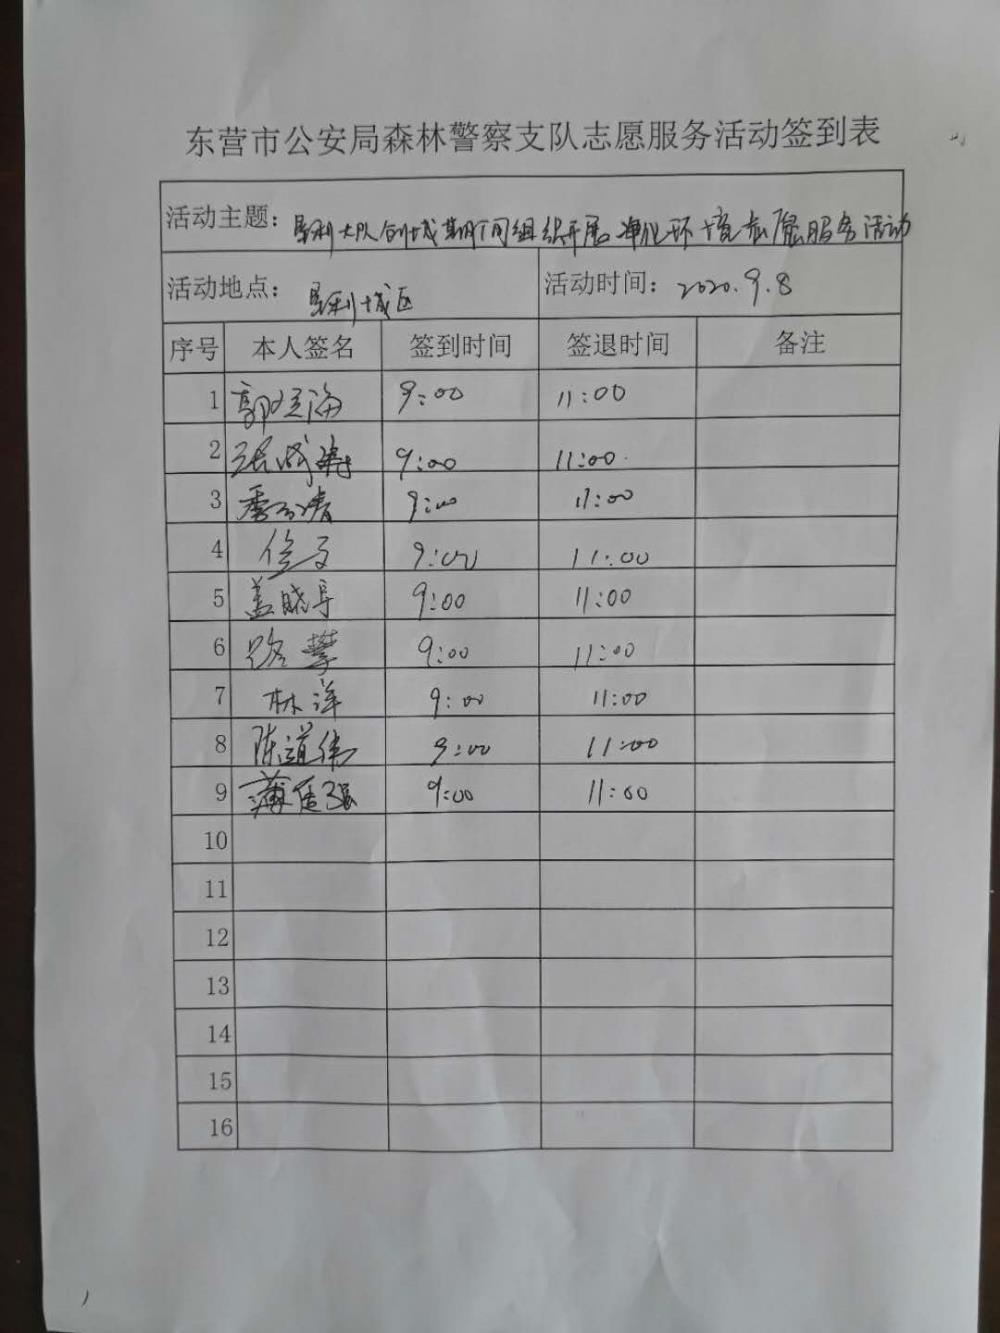 东营市公安局森林警察支队志愿服务活动签到表
活动主题：垦利大队创城期间组织开展净化环境志愿服务活动
活动地点：垦利城区 活动时间：2020.9.8
序号 本人签名 签到时间 签退时间 备注
1 9:00 11:00
2 9:00 11:00
3 9:00 11:00
4 9:00 11:00
5 盖晓 9:00 11:00
6 路攀 9:00 11:00
7 林洋 9:00 11:00
8 陈道伟 9:00 11:00
9 薄 强 9:00 11:00
10
11
12
13
14
15
16